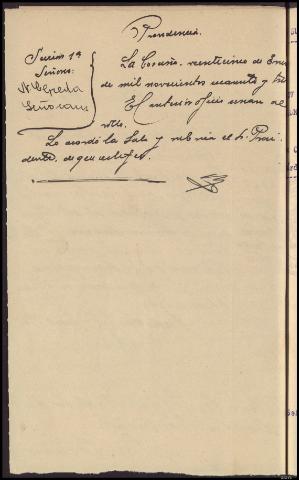 Providencia.
Sección 1ª
Señores:
Cepeda
Señorans
La Coruña, veinticinco de Ene
de mil novecientos cuarenta y
El anterior oficio unan al
rollo.
Lo acordó la Sala y rubrica el Sr. Presi
dente, de que certifico.